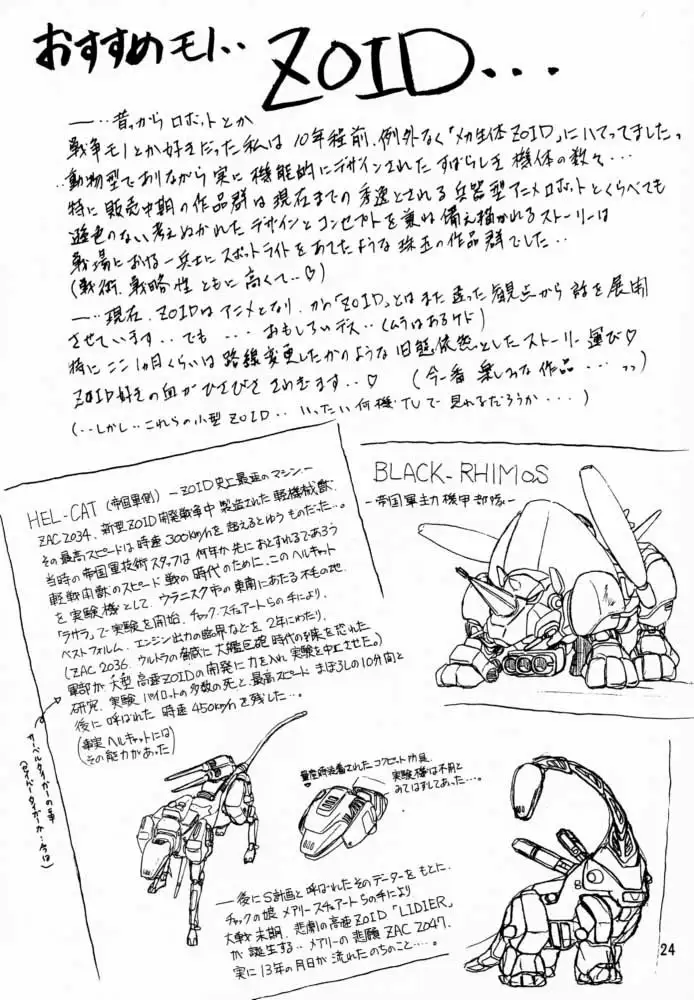 おすすめモノ‥
ZOID...
―‥昔っから ロボットとか
戦争モノとか好きだった私は 10年程前、例外なく「メカ生体ZOID」にハマってましたっ
動物型でありながら実に 機能的にデザインされた すばらしき 機体の数々…
特に 販売中期の作品群は 現在までの 秀逸とされる 兵器型アニメロボットとくらべても
遜色のない 考えぬかれた デザインと コンセプトを 兼ね備え 描かれるストーリーは
戦場における 一兵士に スポットライトを あてたような 珠玉の作品群でした‥
(戦術、戦略性 ともに高くて‥♡)
―‥現在、ZOIDは アニメとなり、かの「ZOID」とはまた違った 観点から 話を 展開
させています‥ でも … おもしろいデス‥(ムラはあるケド)
特に ここ1ヵ月くらいは 路線変更したかのような 旧態依然としたストーリー運び♡
ZOID好きの血が ひさびさ さわぎます‥♡ (今一番 楽しみな 作品…っっ)
(‥しかし‥これらの小型 ZOID‥ いったい 何機 TVで 見れるだろうか…)
HEL-CAT (帝国軍側) ―ZOID史上最速のマシン―
ZAC2034、新型ZOID開発戦争中 製造された 軽機械獣、
その最高スピードは 時速 300km/hを 超えるとゆう ものだった…。
当時の帝国軍技術スタッフは 何年か先に おとずれるであろう
軽戦闘獣のスピード戦の時代のために、このヘルキャット
を実験機として、ウラニスク市の東南にあたる 不毛の地、
「ラサラ」で実験を開始、チャック・スチュアートらの手により、
ベストフォルム、エンジン出力の臨界などを 2年にわたり、
(ZAC 2036、ウルトラの脅威に 大艦巨砲 時代の到来を恐れた
軍部が 大型 高速ZOIDの開発に力を入れ 実験を中止させた。)
研究、実験 パイロットの多数の死と、最高スピード まぼろしの10分間と
後に 呼ばれた 時速 450km/hを残した…。
(事実 ヘルキャットには
その能力があった)
サーベルタイガーの事
(セイバータイガーか…今は)
BLACK-RHIMOS
―帝国軍主力機甲部隊―
量産時装着された コクピット防具、
実験機は不用と
みてはずしてあった…。
――後にS計画と呼ばれたそのデーターをもとに、
チャックの娘 メアリー スチュアートらの手により
大戦末期、悲劇の高速ZOID「LIDIER」
が誕生する‥メアリーの悲願 ZAC 2047、
実に13年の月日が流れたのちのこと…。
24